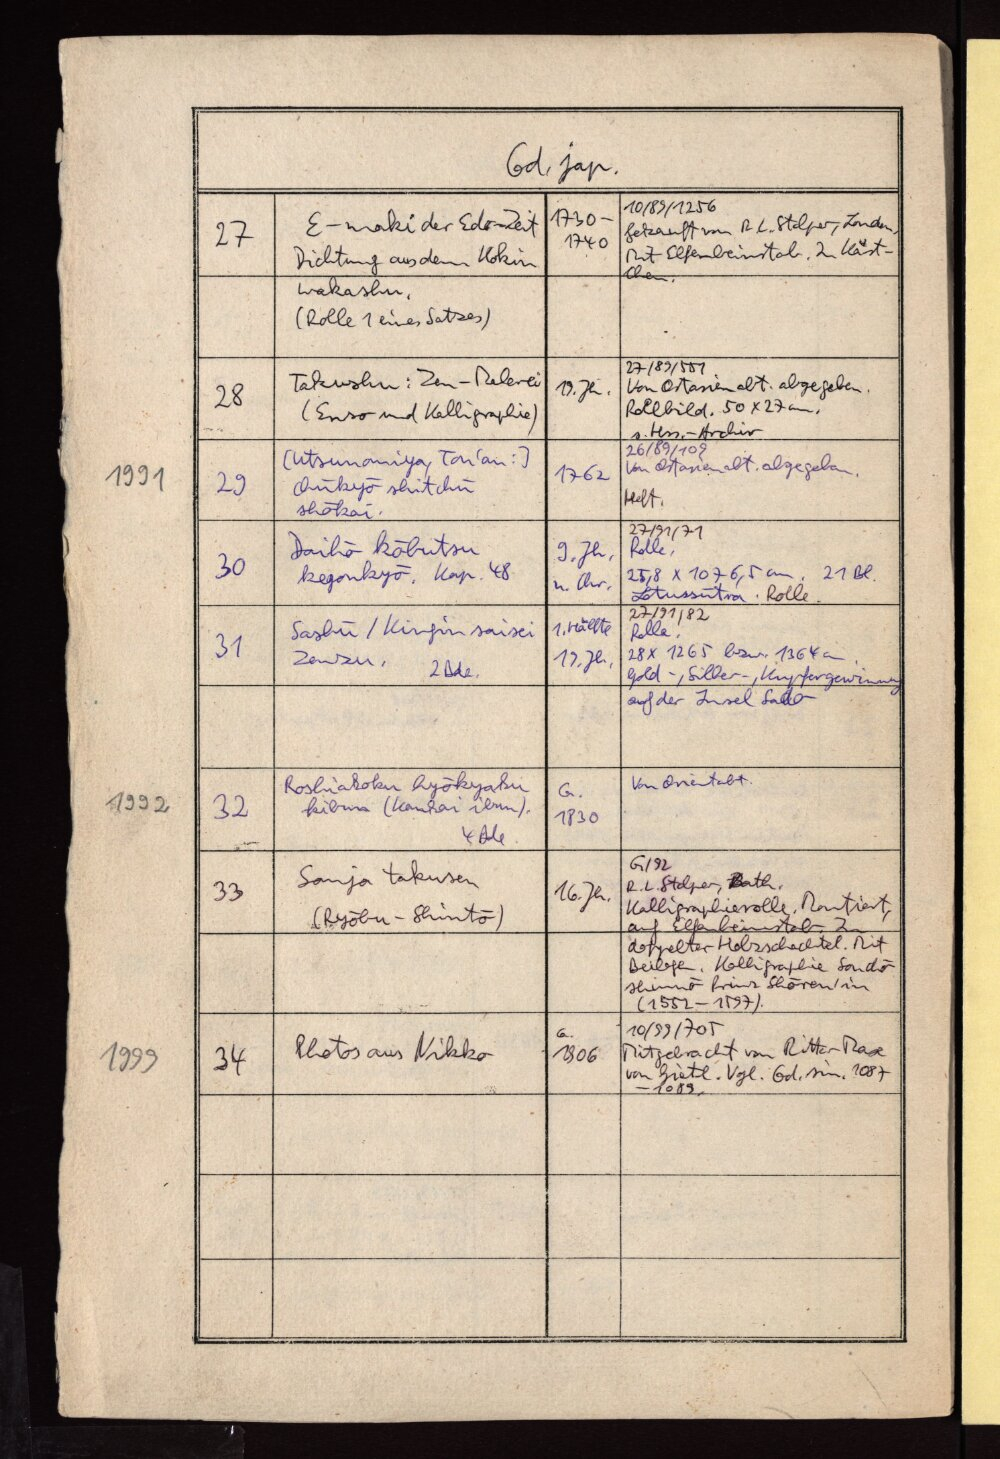 Cod. jap.
27
E-maki der Edo-Zeit
Dichtung aus dem Kokin
wakashu.
(Rolle 1 eines Satzes)
1730-
1740
10/89/1256
Gekauft von R.L. Stolper, London.
Mit Elfenbeinstab. In Käst-
chen.
28
Takushu: Zen-Malerei
(Enso und Kalligraphie)
19. Jh.
27/89/551
Von Ostasienabt. abgegeben.
Rollbild. 50 x 27 cm.
s. Hss.-Archiv
1991
29
[Utsunomiya, Ton'an:]
Chūkyō shitchū
shōkai.
1762
26/89/109
Von Ostasienabt. abgegeben.
Heft.
30
Daihō kōbutsu
kegonkyō. Kap. 48
9. Jh.
n. Chr.
27/91/71
Rolle.
25,8 x 1076,5 cm. 21 Bl.
Lotussūtra. Rolle.
31
Sashū / Kingin saisei
zenzu. 2 Bde.
1. Hälfte
19. Jh.
27/91/82
Rolle.
28 x 1265 bzw. 1364 cm.
Gold-, Silber-, Kupfergewinnung
auf der Insel Sado
1992
32
Roshiakoku hyōkyaku
kibun (Kankai ibun).
4 Bde.
Ca.
1830
Von Orientabt.
33
Sanja takusen
(Ryōbu-Shintō)
16. Jh.
G/92
R.L. Stolper, Bath.
Kalligraphierolle. Montiert
auf Elfenbeinstab. In
doppelter Holzschachtel. Mit
Beilagen. Kalligraphie Sondō
shinnō Prinz Shōren'in
(1552-1597).
1999
34
Photos aus Nikko
Ca.
1906
10/99/705
Mitgebracht von Ritter Max
von Gietl. Vgl. Cod. sin. 1087
-1089.